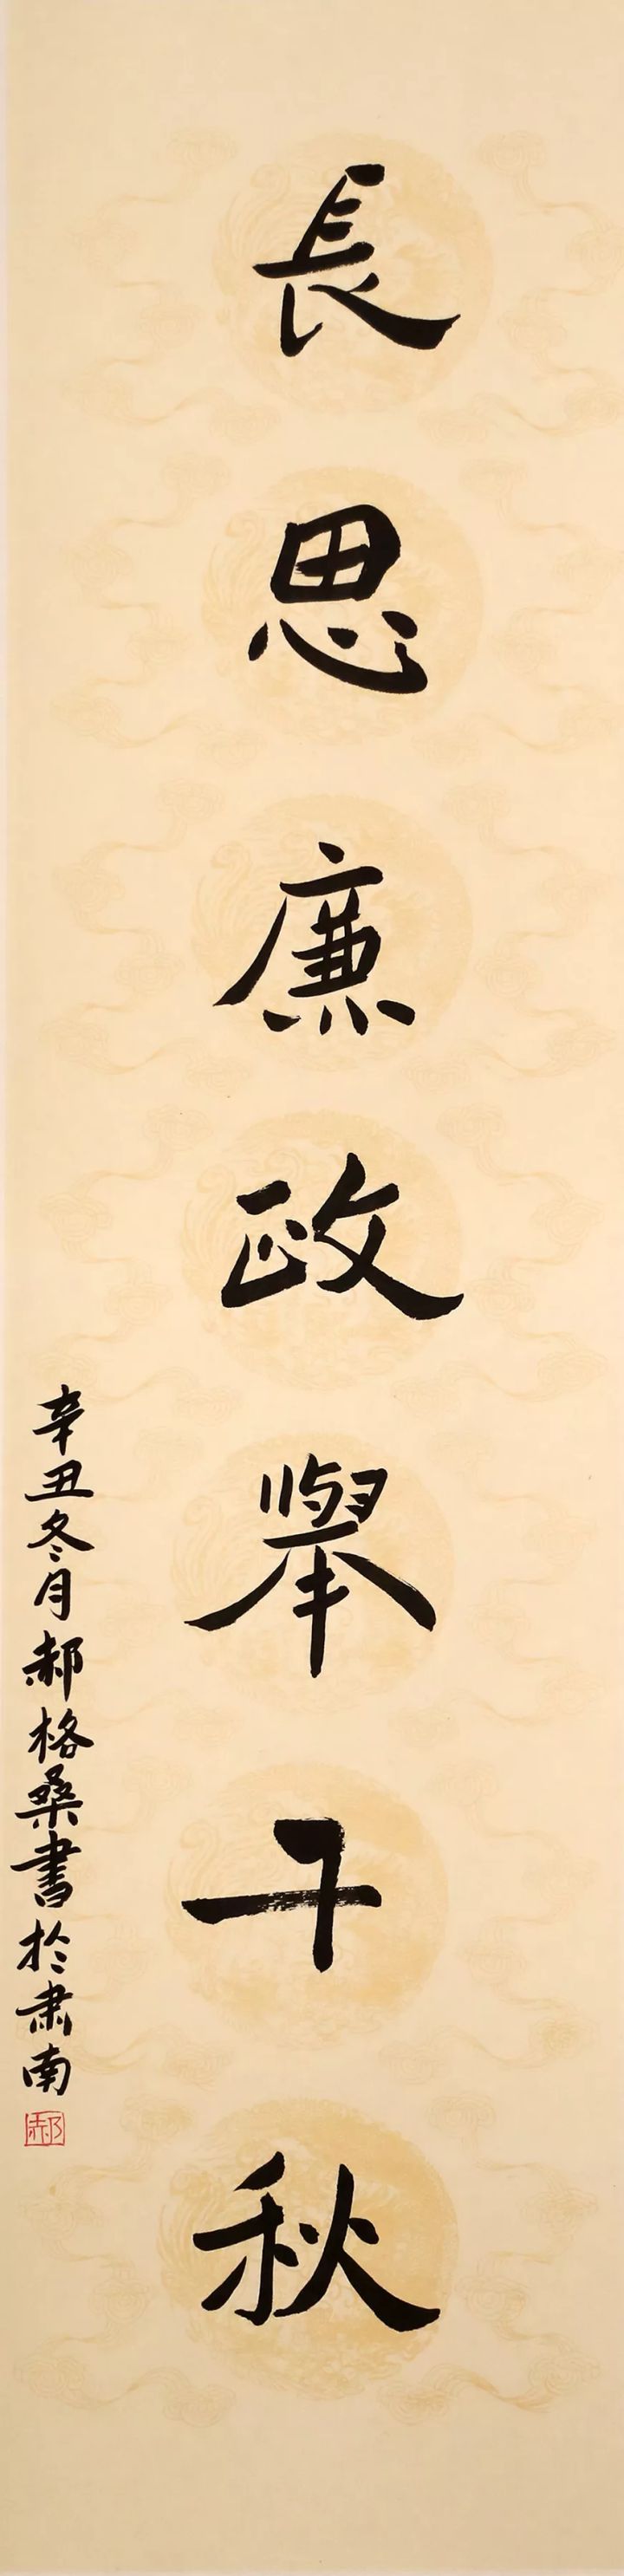 長思廉政舉千秋
辛丑冬月郝格桑書於肅南
郝